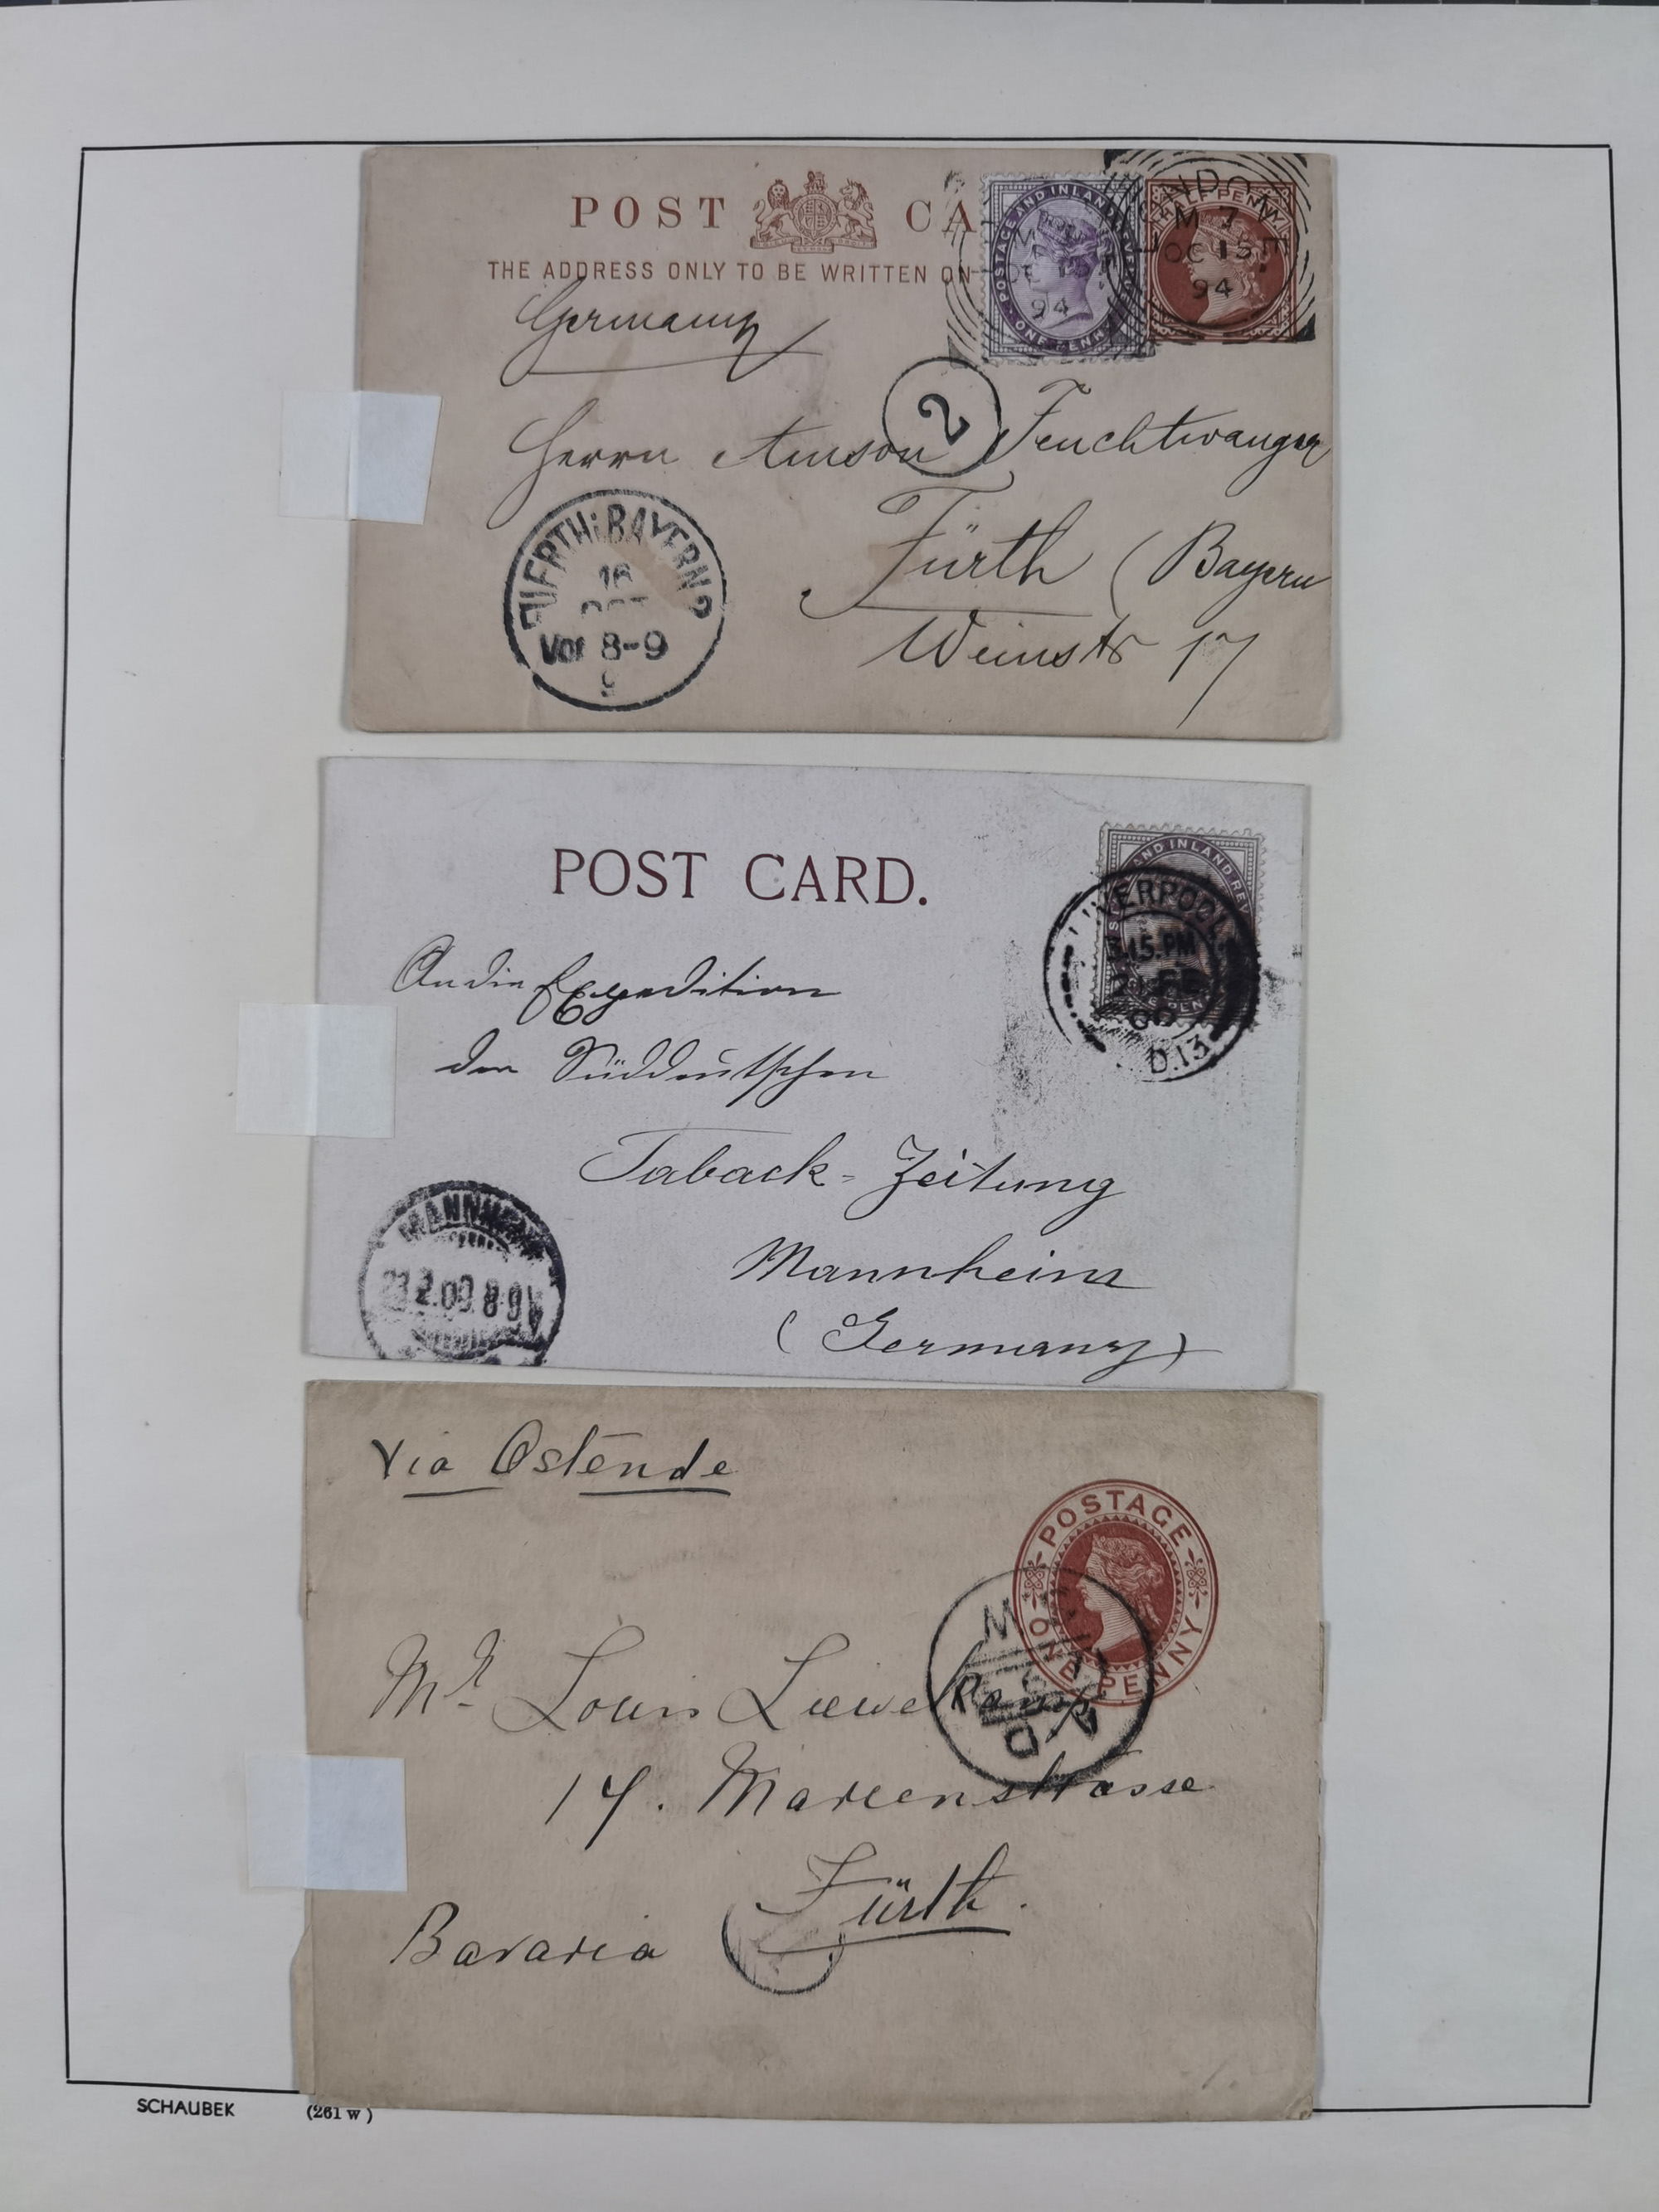 POST CA
THE ADDRESS ONLY TO BE WRITTEN ON
POSTAGE AND INLAND REVENUE
ONE PENNY
HALF PENNY
LONDON
M 7
OC 15
94
Germany
2
Herrn Amson Feuchtwanger
Fürth (Bayern
Weinstr 17
FUERTH i. BAYERN 2
16
OCT
Vor 8-9
9
POST CARD.
AND INLAND REV
LIVERPOOL
.15.PM
FE
00
D.13
An die Expedition
der Süddeutschen
Taback-Zeitung
Mannheim
(Germany)
MANNHEIM
23.2.00.8-9V
Via Ostende
POSTAGE
ONE PENNY
Mr Louis
17. Marienstrasse
Fürth.
Bavaria
SCHAUBEK (261 w)